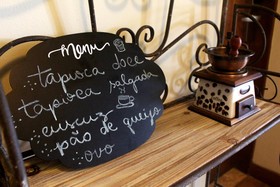 menu
tapioca doce
tapioca salgada
cuscuz
pão de queijo
ovo